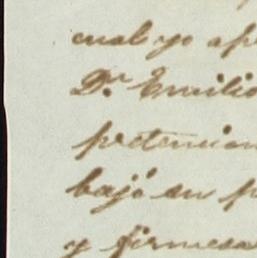 cual yo ap
Dn Emilio
pretencion
bajo su p
y firmesa